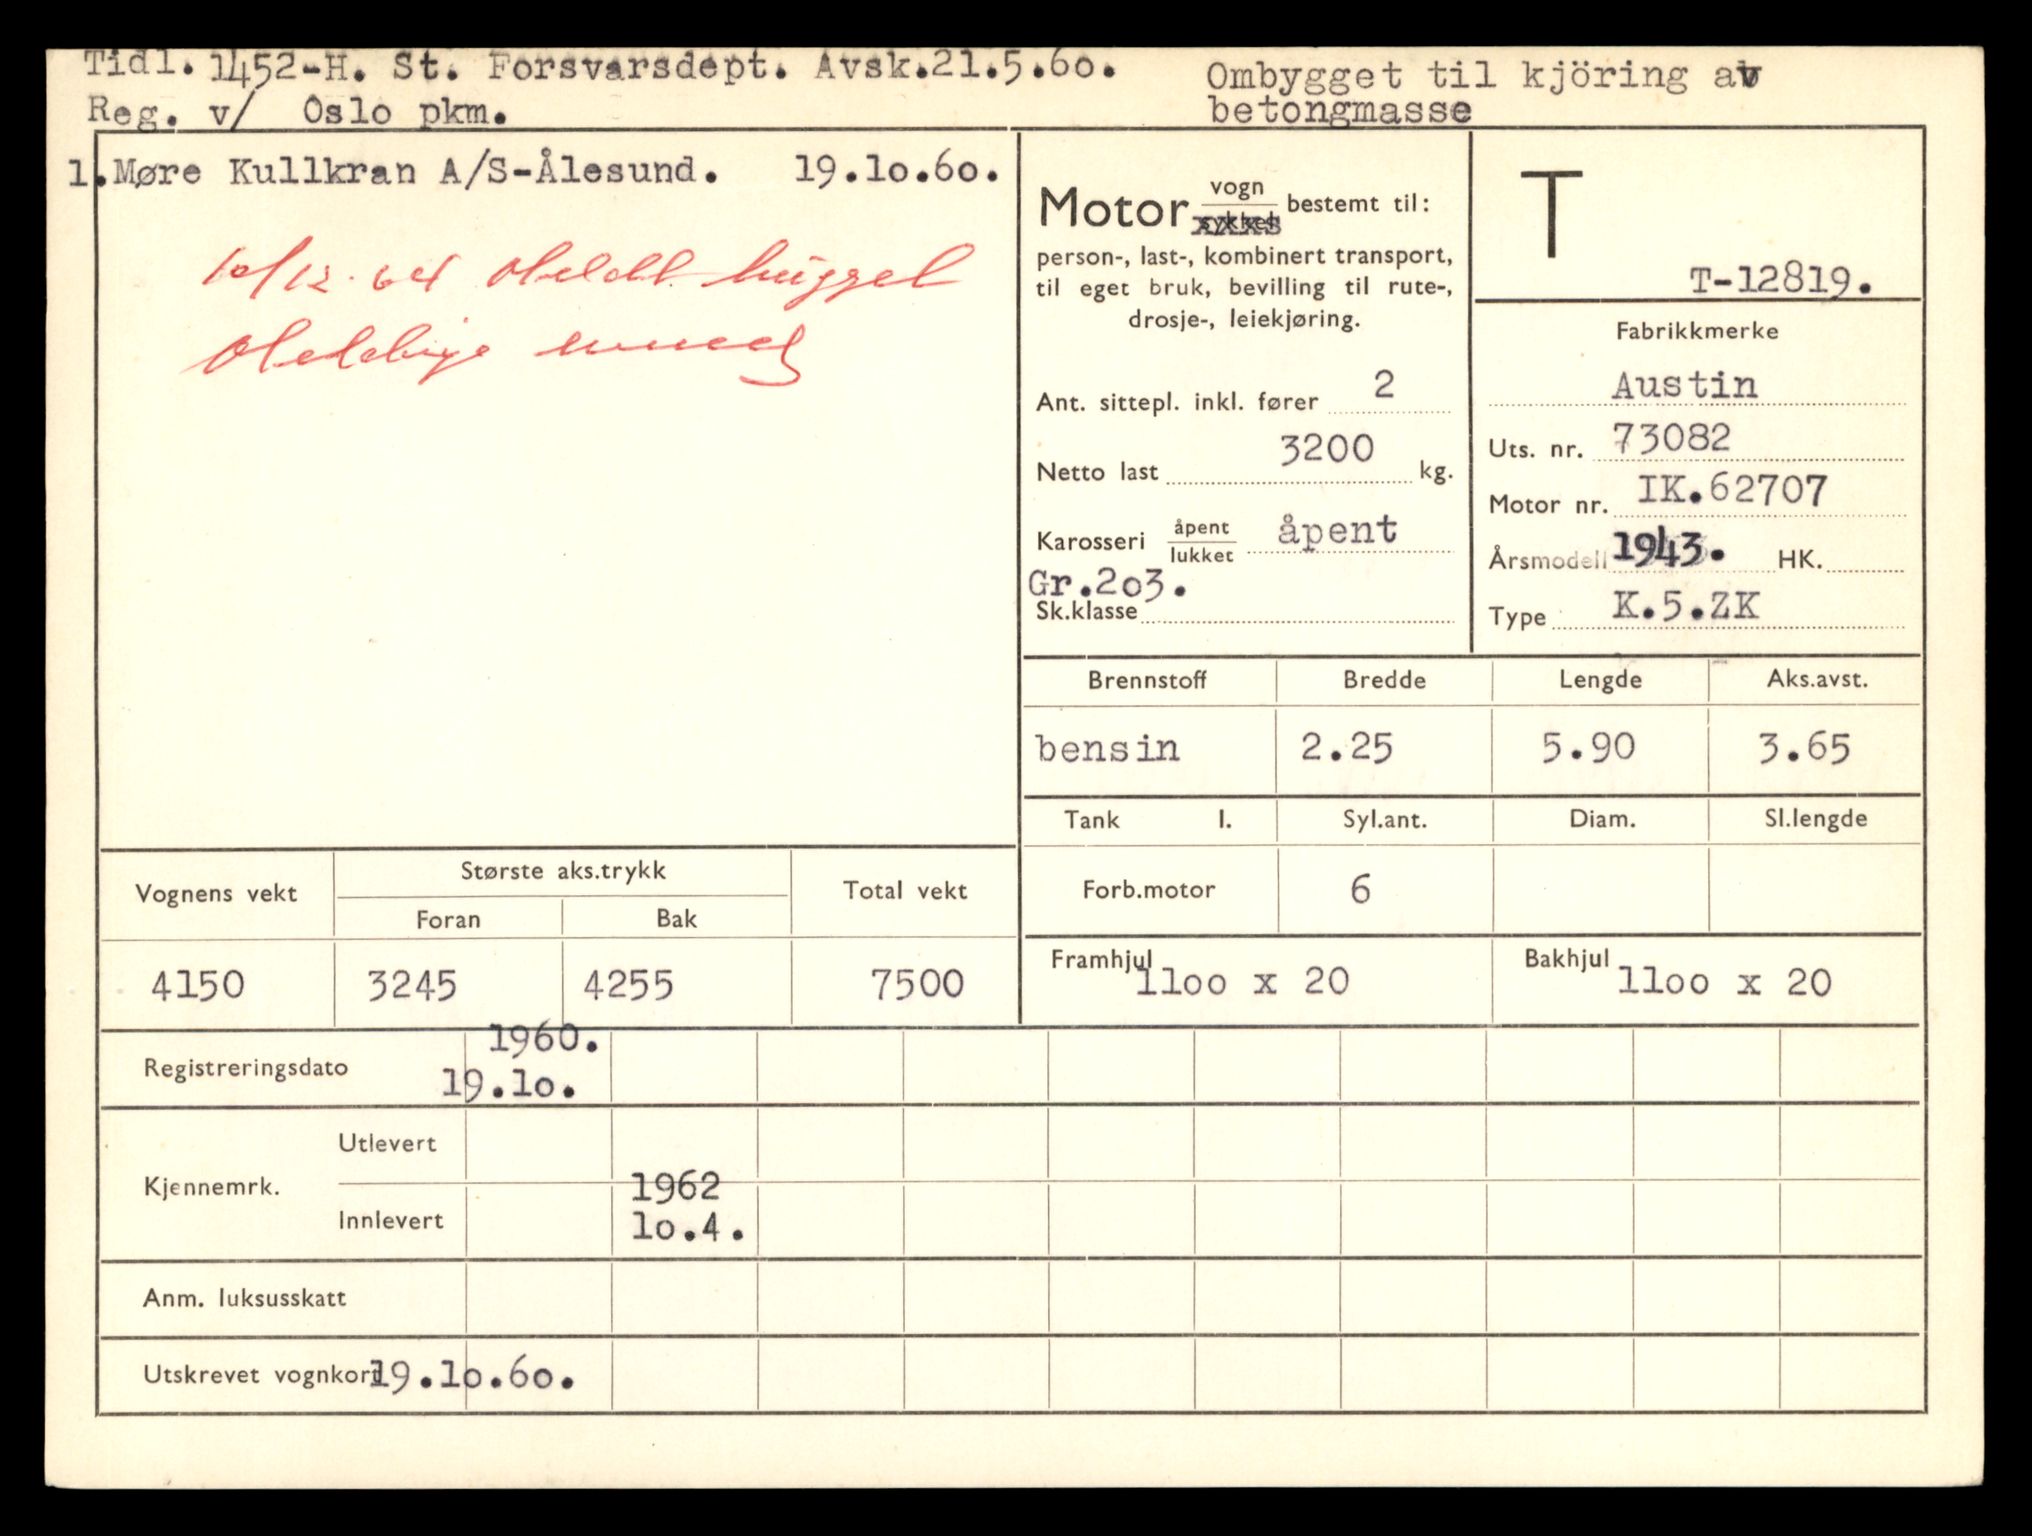 Tidl. 1452-H. St. Forsvarsdept. Avsk.21.5.60.
Reg. v/ Oslo pkm.
Ombygget til kjöring av
betongmasse
1.Møre Kullkran A/S-Ålesund. 19.10.60.
10/12.64 Meldt hugget
Motor vogn bestemt til:
person-, last-, kombinert transport,
til eget bruk, bevilling til rute-,
drosje-, leiekjøring.
Ant. sittepl. inkl. fører 2
Netto last 3200 kg.
Karosseri åpent/lukket åpent
Gr.203.
Sk.klasse
T
T-12819.
Fabrikkmerke
Austin
Uts. nr. 73082
Motor nr. IK.62707
Årsmodell 1943. HK.
Type K.5.ZK
Brennstoff Bredde Lengde Aks.avst.
bensin 2.25 5.90 3.65
Tank l. Syl.ant. Diam. Sl.lengde
Forb.motor 6
Framhjul 1100 x 20 Bakhjul 1100 x 20
Vognens vekt Største aks.trykk Total vekt
Foran Bak
4150 3245 4255 7500
Registreringsdato 1960.
19.10.
Kjennemrk. Utlevert
Innlevert 1962
10.4.
Anm. luksusskatt
Utskrevet vognkort 19.10.60.